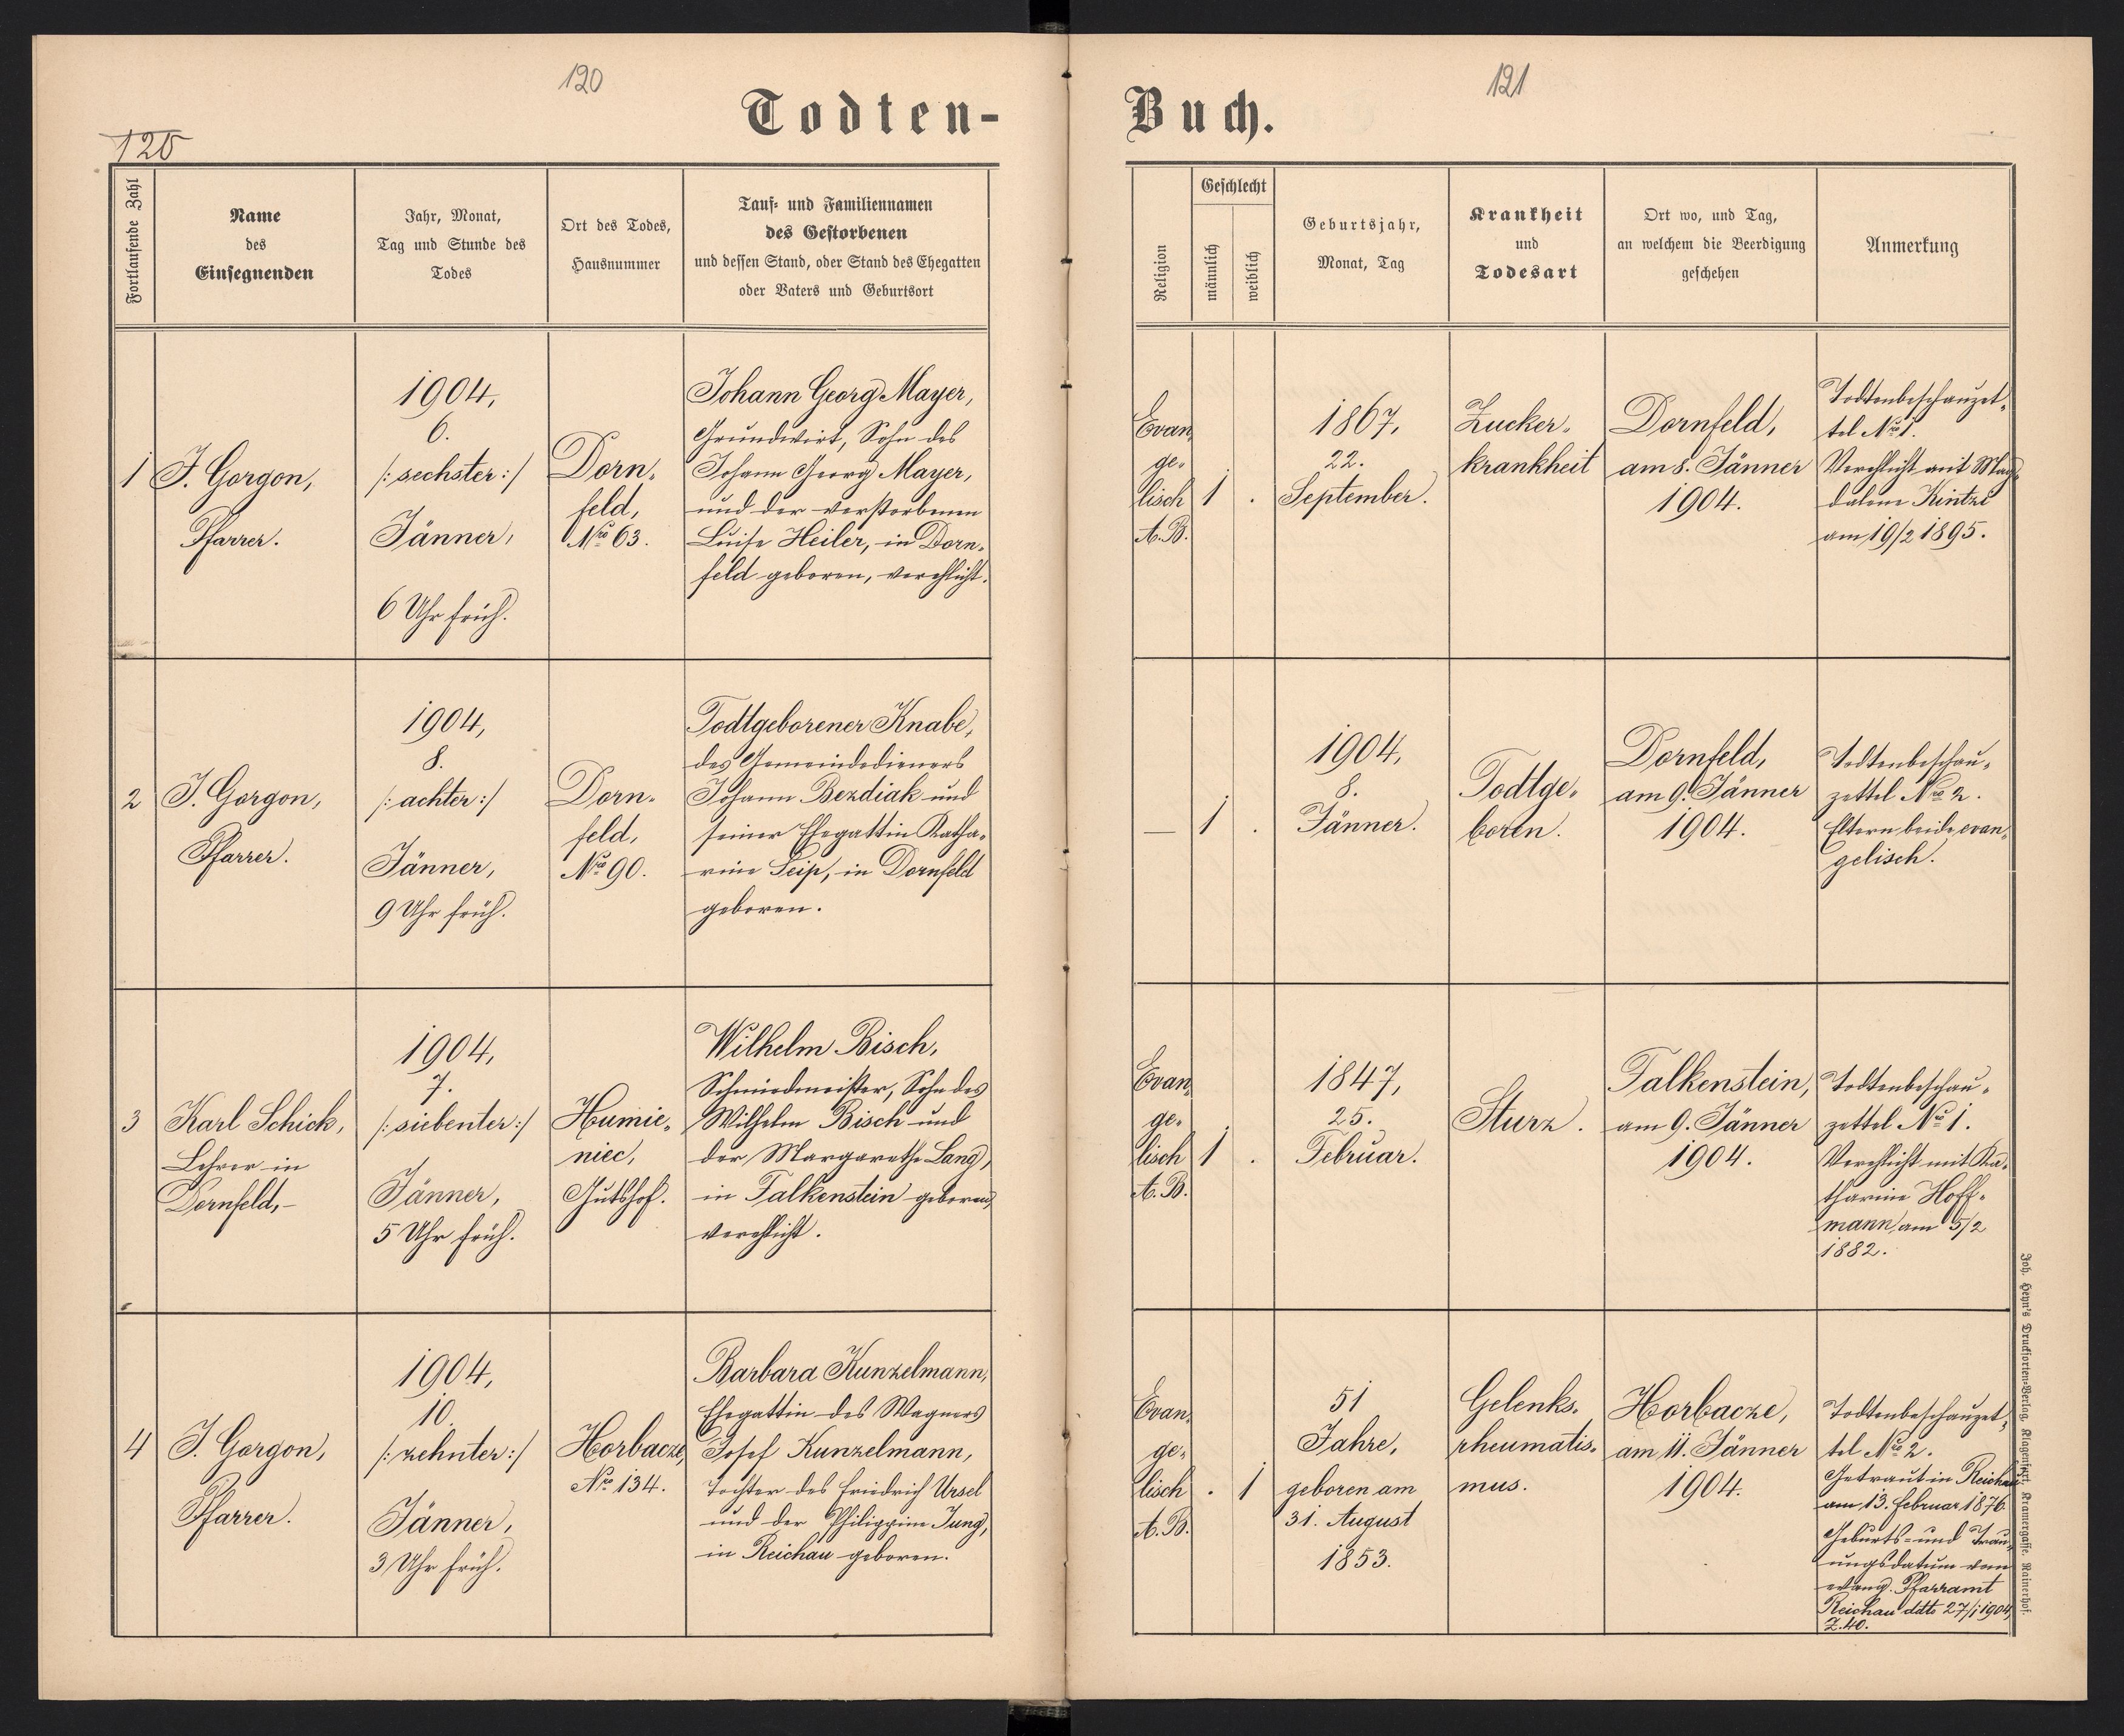 120
Todten-
120
Fortlaufende Zahl
Name
des
Einsegnenden
Jahr, Monat,
Tag und Stunde des
Todes
Ort des Todes,
Hausnummer
Tauf- und Familiennamen
des Gestorbenen
und dessen Stand, oder Stand des Ehegatten
oder Vaters und Geburtsort
1
J. Gorgon,
Pfarrer.
1904,
6.
/: sechster :/
Jänner,
6 Uhr früh.
Dorn-
feld,
Nro 63.
Johann Georg Mayer,
Grundwirt, Sohn des
Johann Georg Mayer,
und der verstorbenen
Luise Heiler, in Dorn-
feld geboren, verehlicht.
2
J. Gorgon,
Pfarrer.
1904,
8.
/: achter :/
Jänner,
9 Uhr früh.
Dorn-
feld,
Nro 90.
Todtgeborener Knabe,
des Gemeindedieners
Johann Bezdiak und
seiner Ehegattin Katha-
rine Seip, in Dornfeld
geboren.
3
Karl Schick,
Lehrer in
Dornfeld,-
1904,
7.
/: siebenter :/
Jänner,
5 Uhr früh.
Humie-
niec,
Gutshof.
Wilhelm Bisch,
Schmiedmeister, Sohn des
Wilhelm Bisch und
der Margarethe Lang,
in Falkenstein geboren,
verehlicht.
4
J. Gorgon,
Pfarrer.
1904,
10.
/: zehnter :/
Jänner,
3 Uhr früh.
Horbacze,
Nro 134.
Barbara Kunzelmann,
Ehegattin des Wagners
Josef Kunzelmann,
Tochter des Friedrich Ursel
und der Philippine Jung,
in Reichau geboren.
121
Buch.
Religion
Geschlecht
männlich
weiblich
Geburtsjahr,
Monat, Tag
Krankheit
und
Todesart
Ort wo, und Tag,
an welchem die Beerdigung
geschehen
Anmerkung
Evan-
ge-
lisch
A. B.
1
.
1867,
22.
September.
Zucker-
krankheit
Dornfeld,
am 8. Jänner
1904.
Todtenbeschauzet-
tel Nro 1.
Verehlicht mit Mag-
dalene Kintzi
am 19/2 1895.
—
1
.
1904,
8.
Jänner.
Todtge-
boren.
Dornfeld,
am 9. Jänner
1904.
Todtenbeschau-
zettel Nro 2.
Eltern beide evan-
gelisch.
Evan-
ge-
lisch
A. B.
1
.
1847,
25.
Februar.
Sturz.
Falkenstein,
am 9. Jänner
1904.
Todtenbeschau-
zettel Nro 1.
Verehlicht mit Ka-
tharine Hoff-
mann, am 5/2
1882.
Evan-
ge-
lisch
A. B.
.
1
51
Jahre,
geboren am
31. August
1853.
Gelenks-
rheumatis-
mus.
Horbacze,
am 11. Jänner
1904.
Todtenbeschauzet-
tel Nro 2.
Getraut in Reichau
am 13. Februar 1876.
Geburts- und Trau-
ungsdatum vom
evang. Pfarramt
Reichau ddto 27/1 1904,
Z. 40.
Joh. Heyn's Drucksorten-Verlag, Klagenfurt, Kramergasse. Rainerhof.